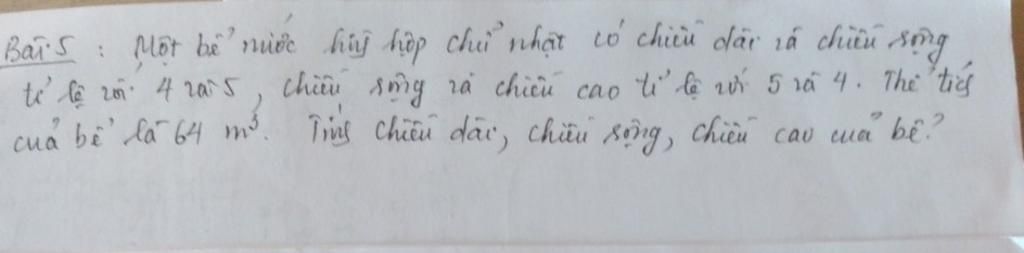 Bài 5 : Một bể nước hình hộp chữ nhật có chiều dài và chiều rộng
tỉ lệ với 4 và 5, chiều rộng và chiều cao tỉ lệ với 5 và 4. Thể tích
của bể là 64 m³. Tính chiều dài, chiều rộng, chiều cao của bể?